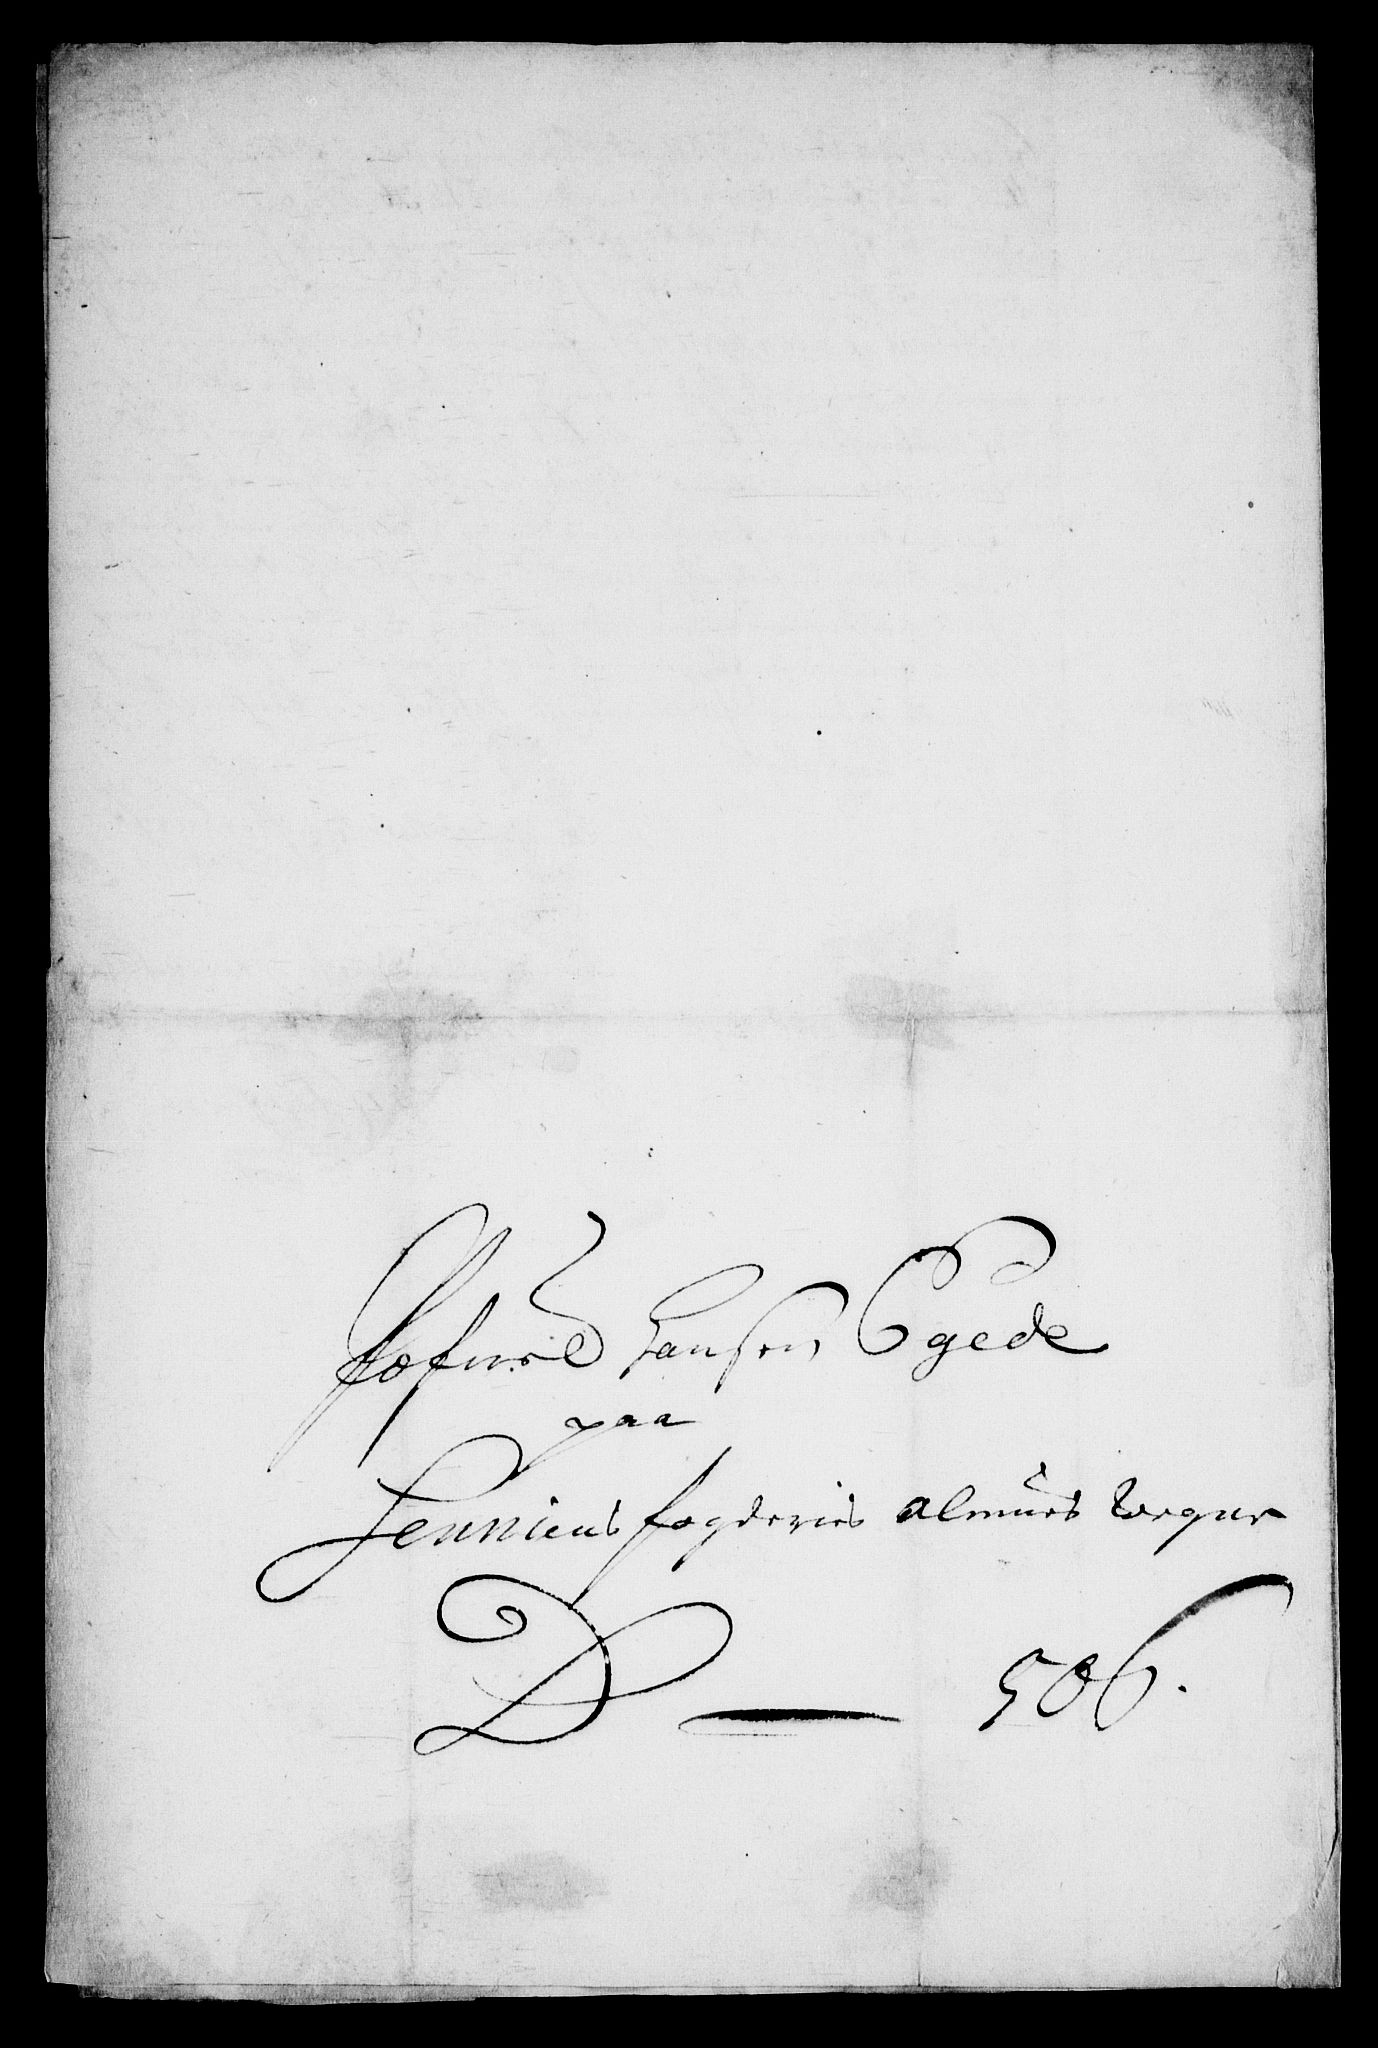 Hansen Egede
paa
Senniens fogderies almues wegne
D — 506.